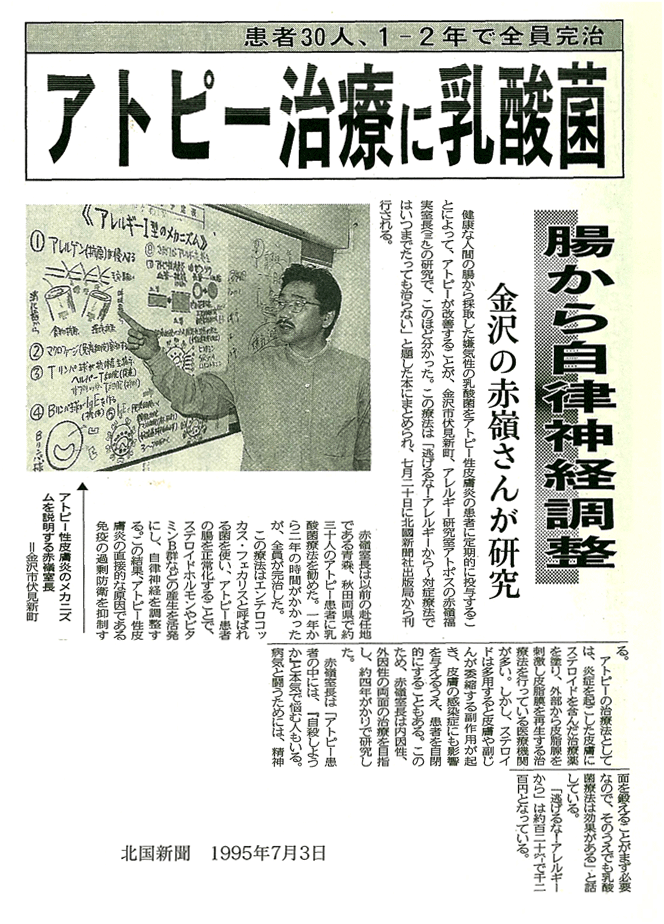 患者30人、1－2年で全員完治
アトピー治療に乳酸菌
腸から自律神経調整
金沢の赤嶺さんが研究
健康な人間の腸から採取した嫌気性の乳酸菌をアトピー性皮膚炎の患者に定期的に投与するこ
とによって、アトピーが改善することが、金沢市伏見新町、アレルギー研究室アトポスの赤嶺福
実室長の研究で、このほど分かった。この療法は「逃げるな！アレルギーから～対症療法で
はいつまでたっても治らない」と題した本にまとめられ、七月二十日に北國新聞社出版局から刊
行される。
《アレルギーⅠ型のメカニズム》
① アレルゲン(抗原)が侵入する
④ Bリンパ球がIgEを作る
アトピー性皮膚炎のメカニズ
ムを説明する赤嶺室長
＝金沢市伏見新町
赤嶺室長は以前の赴任地
である青森、秋田両県で約
三十人のアトピー患者に乳
酸菌療法を勧めた。一年か
ら二年の時間がかかった
が、全員が完治した。
この療法はエンテロコッ
カス・フェカリスと呼ばれ
る菌を使い、アトピー患者
の腸を正常化することで、
ステロイドホルモンやビタ
ミンB群などの産生を活発
にし、自律神経を調整す
る。この結果、アトピー性皮
膚炎の直接的な原因である
免疫の過剰防衛を抑制す
る。
アトピーの治療法として
は、炎症を起こした皮膚に
ステロイドを含んだ治療薬
を塗り、外部から皮脂腺を
刺激し皮脂膜を再生する治
療法を行っている医療機関
が多い。しかし、ステロイ
ドは多用すると皮膚や副じ
んが委縮する副作用が起
き、皮膚の感染症にも影響
を与えるうえ、患者を自閉
的にすることもある。この
ため、赤嶺室長は内因性、
外因性の両面の治療を目指
し、約四年がかりで研究し
た。
赤嶺室長は「アトピー患
者の中には、『自殺しよう
か』と本気で悩む人もいる。
病気と闘うためには、精神
面を鍛えることがまず必要
なので、そのうえでも乳酸
菌療法は効果がある」と話
している。
「逃げるな！アレルギー
から」は約百二十㌻で千二
百円となっている。
北国新聞　1995年7月3日